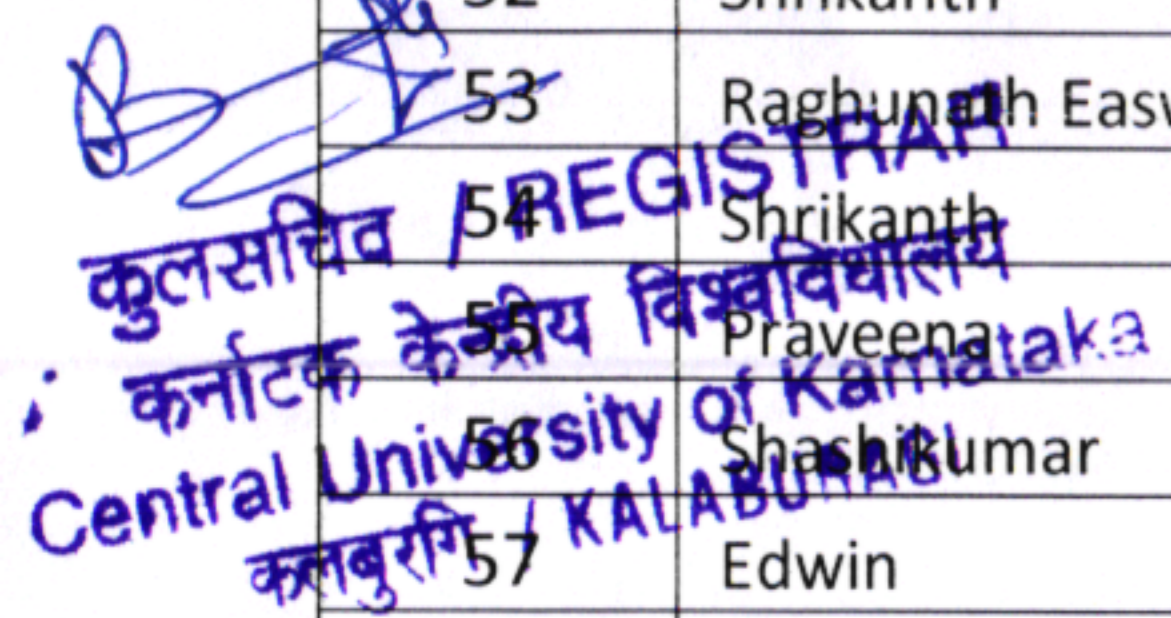 53 Raghunath
54 Shrikanth
55 Praveena
56 Shashikumar
57 Edwin
कुलसचिव / REGISTRAR
कर्नाटक केन्द्रीय विश्वविद्यालय
Central University of Karnataka
कलबुरगि / KALABURAGI